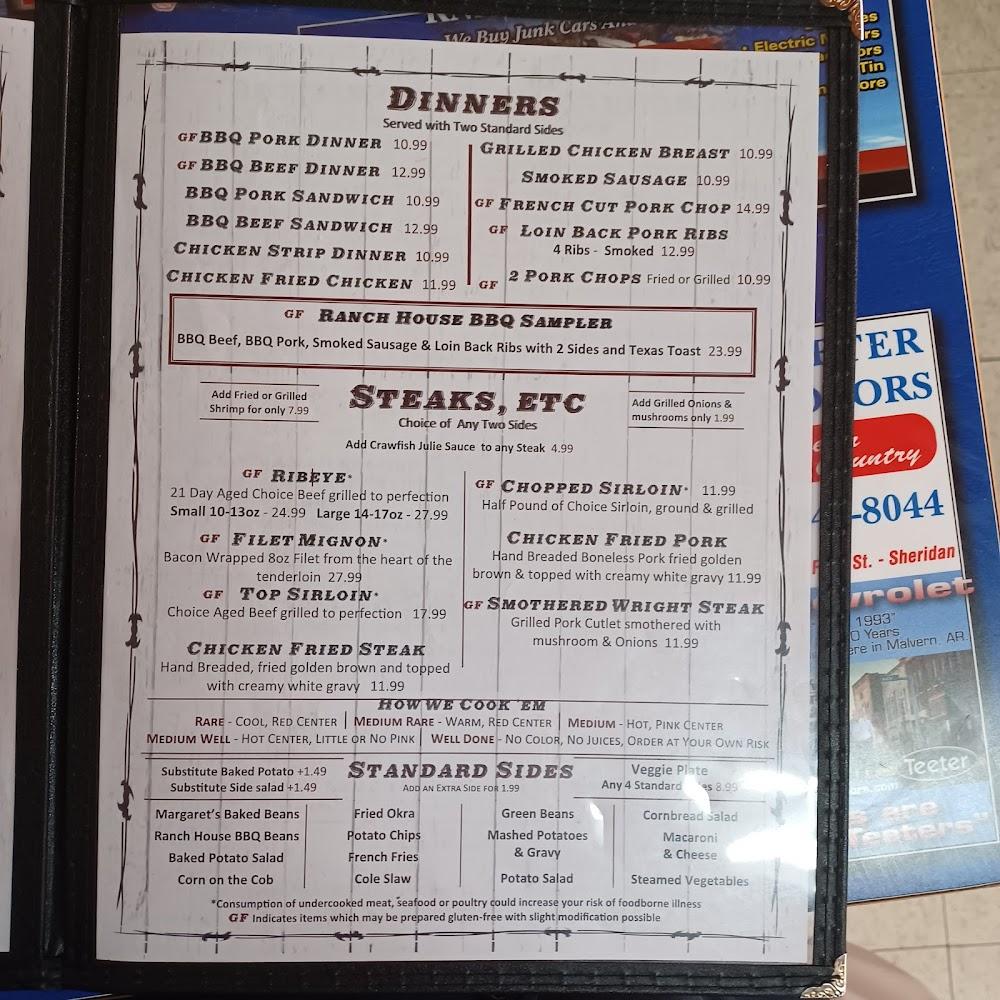 We Buy Junk Cars
Electric
Tin
DINNERS
Served with Two Standard Sides
GF BBQ PORK DINNER 10.99
GF BBQ BEEF DINNER 12.99
BBQ PORK SANDWICH 10.99
BBQ BEEF SANDWICH 12.99
CHICKEN STRIP DINNER 10.99
CHICKEN FRIED CHICKEN 11.99
GRILLED CHICKEN BREAST 10.99
SMOKED SAUSAGE 10.99
GF FRENCH CUT PORK CHOP 14.99
GF LOIN BACK PORK RIBS
4 Ribs - Smoked 12.99
GF 2 PORK CHOPS Fried or Grilled 10.99
GF RANCH HOUSE BBQ SAMPLER
BBQ Beef, BBQ Pork, Smoked Sausage & Loin Back Ribs with 2 Sides and Texas Toast 23.99
Add Fried or Grilled
Shrimp for only 7.99
STEAKS, ETC
Choice of Any Two Sides
Add Grilled Onions &
mushrooms only 1.99
Add Crawfish Julie Sauce to any Steak 4.99
GF RIBEYE*
21 Day Aged Choice Beef grilled to perfection
Small 10-13oz - 24.99 Large 14-17oz - 27.99
GF FILET MIGNON*
Bacon Wrapped 8oz Filet from the heart of the
tenderloin 27.99
GF TOP SIRLOIN*
Choice Aged Beef grilled to perfection 17.99
CHICKEN FRIED STEAK
Hand Breaded, fried golden brown and topped
with creamy white gravy 11.99
GF CHOPPED SIRLOIN* 11.99
Half Pound of Choice Sirloin, ground & grilled
CHICKEN FRIED PORK
Hand Breaded Boneless Pork fried golden
brown & topped with creamy white gravy 11.99
GF SMOTHERED WRIGHT STEAK
Grilled Pork Cutlet smothered with
mushroom & Onions 11.99
HOW WE COOK 'EM
RARE - COOL, RED CENTER | MEDIUM RARE - WARM, RED CENTER | MEDIUM - HOT, PINK CENTER
MEDIUM WELL - HOT CENTER, LITTLE OR NO PINK | WELL DONE - NO COLOR, NO JUICES, ORDER AT YOUR OWN RISK
Substitute Baked Potato +1.49
Substitute Side salad +1.49
STANDARD SIDES
ADD AN EXTRA SIDE FOR 1.99
Veggie Plate
Any 4 Standard Sides 8.99
Margaret's Baked Beans
Ranch House BBQ Beans
Baked Potato Salad
Corn on the Cob
Fried Okra
Potato Chips
French Fries
Cole Slaw
Green Beans
Mashed Potatoes
& Gravy
Potato Salad
Cornbread Salad
Macaroni
& Cheese
Steamed Vegetables
*Consumption of undercooked meat, seafood or poultry could increase your risk of foodborne illness
GF Indicates items which may be prepared gluten-free with slight modification possible
-8044
St. - Sheridan
1993"
Years
in Malvern, AR.
Teeter
are